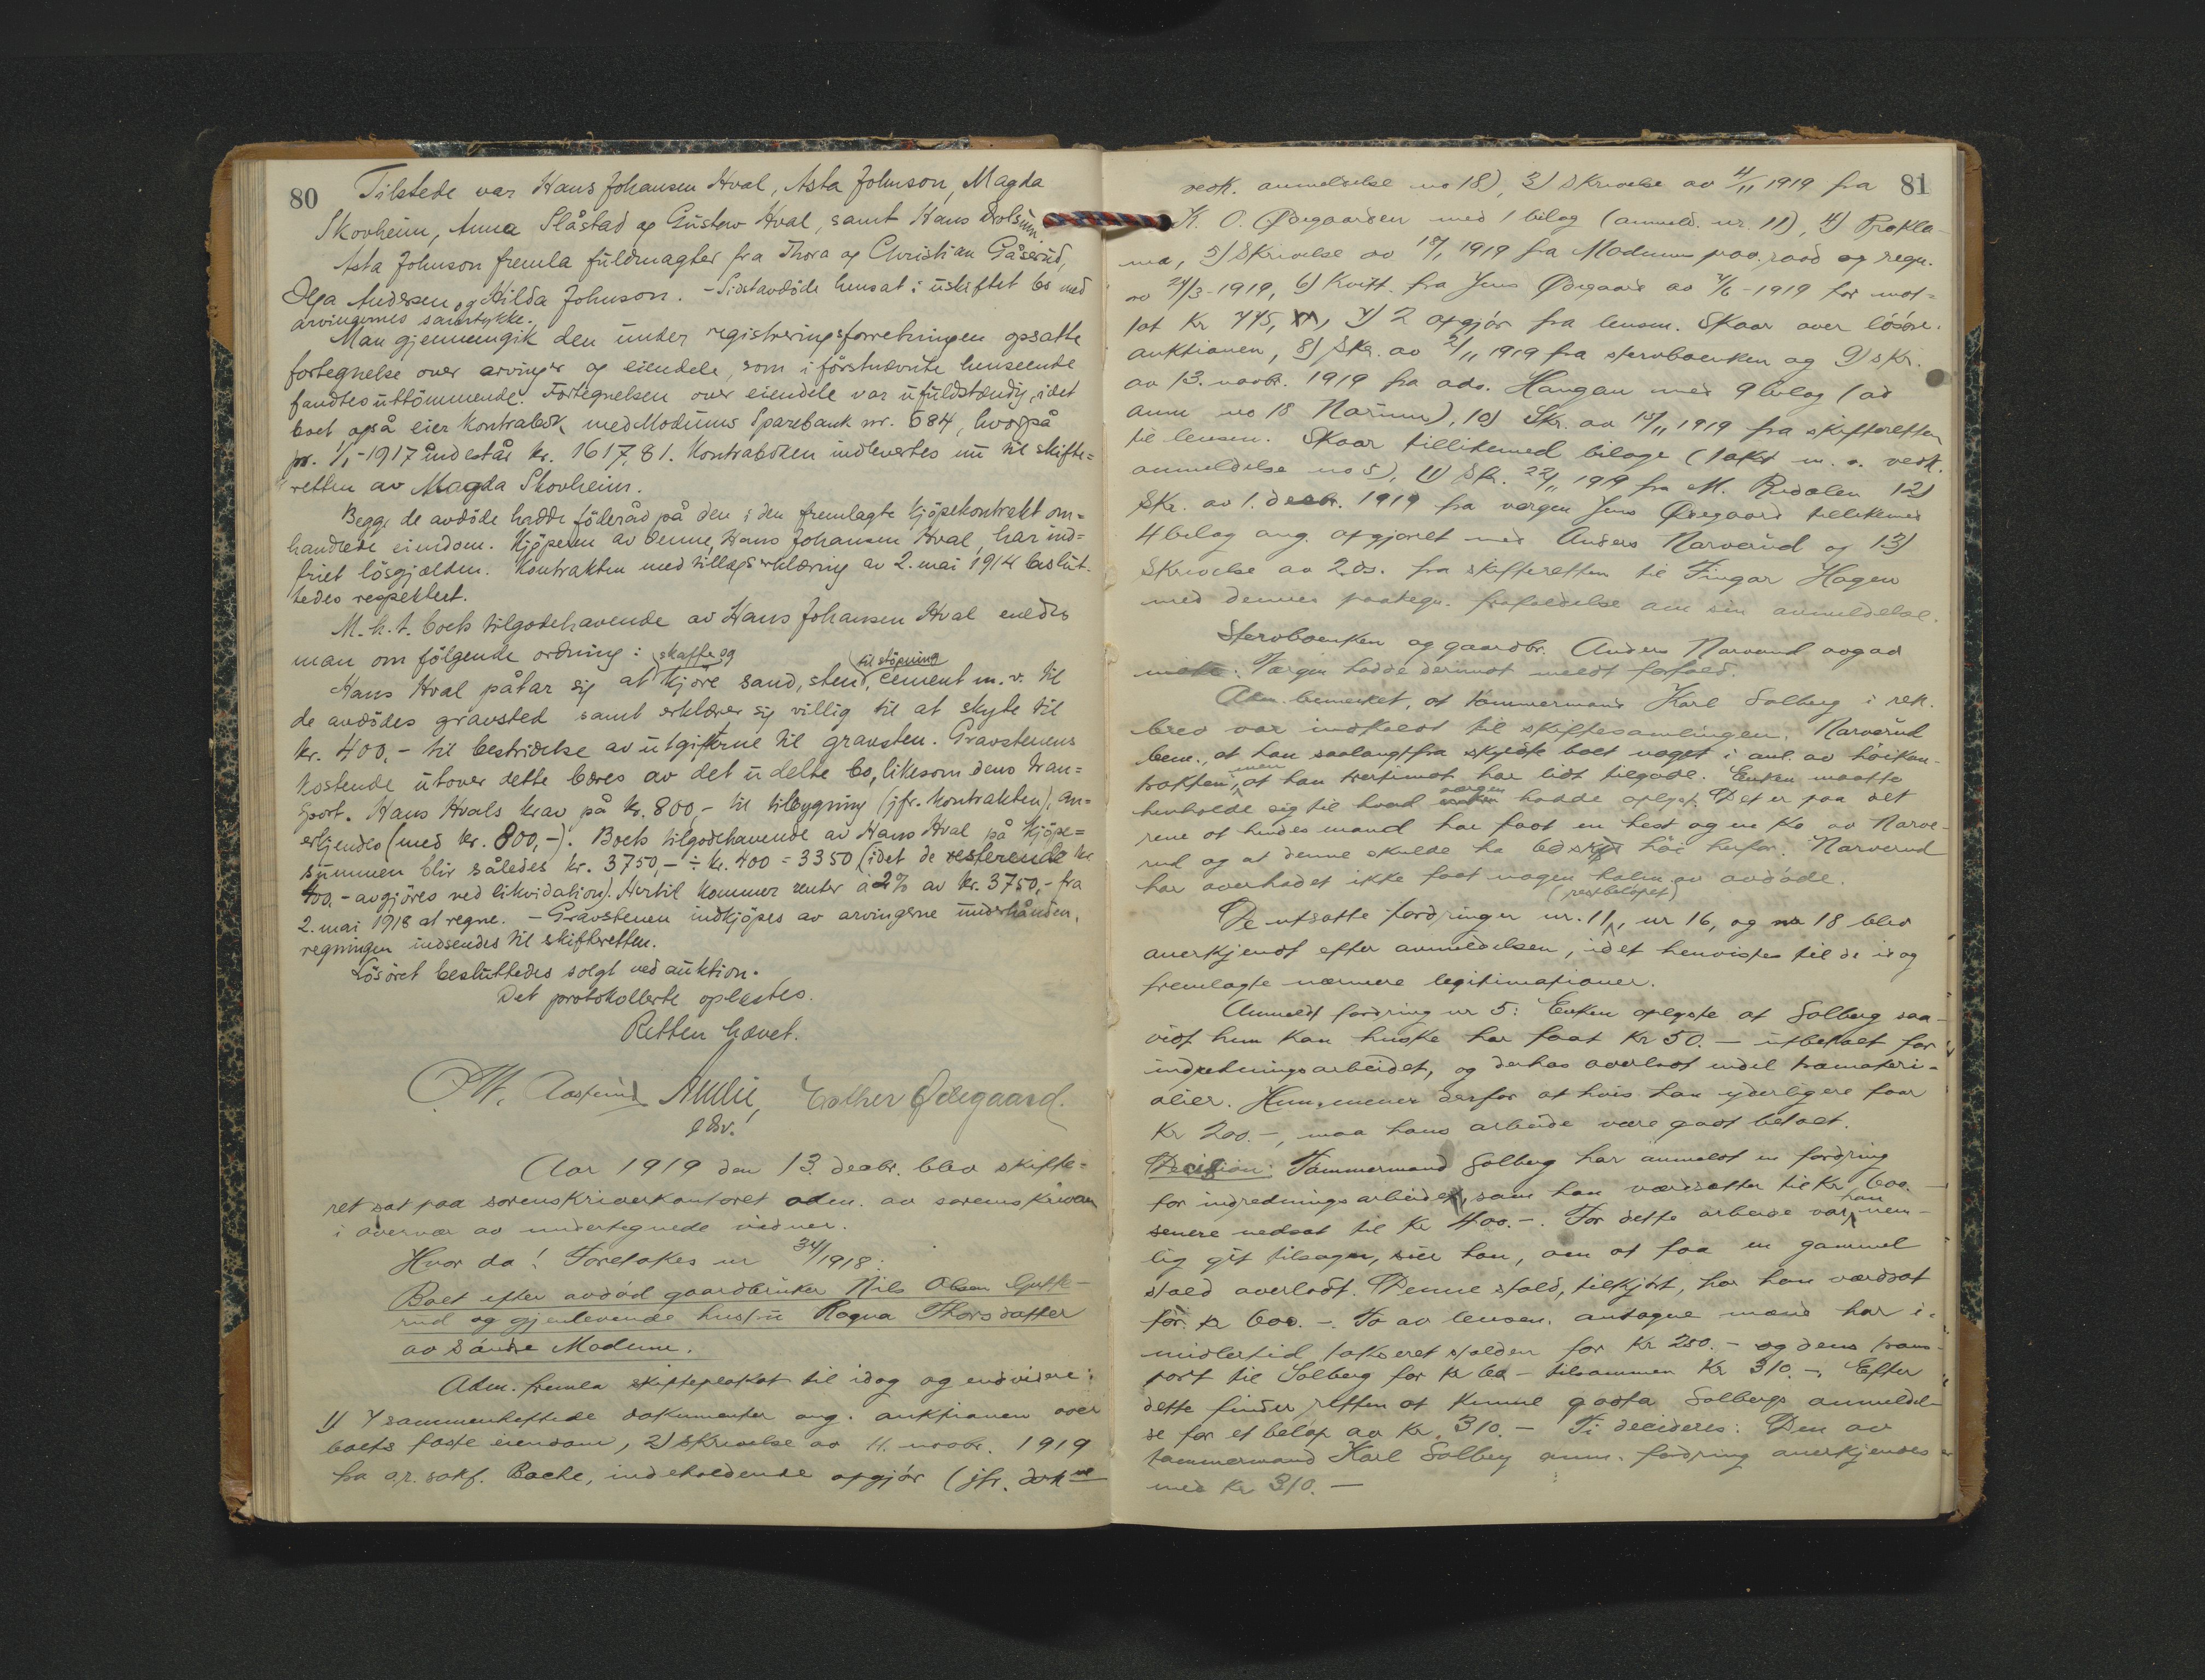 80
Tilstede var Hans Johansen Hval, Asta Johnson, Magda
Skovheim, Anna Slåstad og Gustav Hval, samt Hans
Asta Johnson fremla fuldmagter fra Thora og Christian Gåserud,
Olga Andersen og Hilda Johnson. - Sidstavdöde hensat i uskiftet bo med
arvingernes samtykke.
Man gjennemgik den under registreringsforretningen opsatte
fortegnelse over arvinger og eiendele, som i förstnævnte henseende
fandtes uttömmende. Fortegnelsen over eiendele var ufuldstændig, idet
boet også eier kontrabok med Modums Sparebank nr. 684, hvorpå
pr. 1/1-1917 indestår kr. 1617,81. Kontraboken indlevertes nu til skifte=
retten av Magda Skovheim.
Begge de avdöde hadde föderåd på den i den fremlagte kjöpekontrakt om=
handlede eiendom. Kjöperen av denne, Hans Johansen Hval, har ind=
friet lösgjælden. Kontrakten med tillægserklæring av 2. mai 1914 beslut.
tedes respektert.
M.h.t. boets tilgodehavende av Hans Johansen Hval enedes
man om fölgende ordning: skaffe og
til stöpning
Hans Hval påtar sig at kjöre sand, sten, cement m.v. til
de avdödes gravsted samt erklærer sig villig til at skyte til
kr. 400,- til bestridelse av utgifterne til gravsten. Gravstenens
kostende utover dette bæres av det udelte bo, likesom dens tran=
sport. Hans Hvals krav på kr. 800,- til tilbygning (jfr. kontrakten), an=
erkjendes (med kr. 800,-). Boets tilgodehavende av Hans Hval på kjöpe=
summen blir således kr. 3750,- ÷ kr. 400 = 3350 (idet de resterende kr
400,- avgjöres ved likvidation). Hertil kommer renter à 2% av kr. 3750,- fra
2. mai 1918 at regne. - Gravstenen indkjöpes av arvingerne underhånden,
regningen indsendes til skifteretten.
Lösöret besluttedes solgt ved auktion.
Det protokollerte oplæstes.
Retten hævet.
Esther Ødegaard.
Aar 1919 den 13. decbr. blev skifte=
ret sat paa sorenskriverkontoret adm. av sorenskriveren
i overvær av undertegnede vidner.
Hvor da! Foretokes nr 34/1918:
Boet efter avdöd gaardbruker Nils Olsen
rud og gjenlevende hustru Ragna Thorsdatter
av Söndre Modum.
Adm. fremla skifteplakat til idag og endvidere:
1) 7 sammenheftede dokumenter ang. auktionen over
boets faste eiendom, 2) skrivelse av 11. novbr. 1919
fra o.r. sakf. Bache, indeholdende opgjör (jfr. dok
81
vedk. anmeldelse no 18), 3) skrivelse av 4/11 1919 fra
K. O. Ødegaarden med 1 bilag (anmeld. nr. 11), 4) Prokla-
ma, 5) Skrivelse av 1919 fra Modums og regn.
av 24/3-1919, 6) Kvitt. fra Jens Ødegaard av 4/6-1919 for mot=
tat Kr 445, 7) 2 opgjör fra lensm. Skaar over lösöre.
auktionen, 8) Skr. av 1919 fra stervboenken og 9) skr.
av 13. novbr. 1919 fra adv. Haugan med 9 bilag (ad
anm no 18 10) Skr. av 1919 fra skifteretten
til lensm. Skaar tillikemed bilage (takst m. v. vedk.
anmeldelse no 5), 11) Skr. 22/11 1919 fra M. 12)
Skr. av 1. decbr. 1919 fra vergen Jens Ødegaard tillikemed
4 bilag ang. opgjöret med Anders Narverud og 13)
Skrivelse av 2. ds. fra skifteretten til Hagen
med dennes paategn. frafaldelse om sin anmeldelse.
Stervboenken og gaardbr. Anders Narverud avgav
möte. Vergen hadde derimot meldt forfald.
Adm. bemerket, at tömmermand Karl Solberg i rek.
brev var indkaldt til skiftesamlingen. Narverud
bem., at han saalangtfra skyldte boet noget i anl. av höikon-
trakten, men at han tvertimot har lidt tilgode. Enken maatte
henholde sig til hvad vergen hadde oplyst. Det er paa det
rene at hendes mand har faat en hest og en ko av Narve-
rud og at denne skulde ha höi herfor. Narverud
har overhodet ikke faat nogen halm av avdöde.
(restbelöpet)
De utsatte fordringer nr. 11, nr 16, og no 18 blev
anerkjendt efter anmeldelsen, idet henvistes til de idag
fremlagte nærmere legitimationer.
Anmeldt fordring nr 5: Enken oplyste at Solberg saa-
vidt hun kan huske har faat kr 50.- utbetalt for
indredningsarbeidet, og derhos overlatt endel tramateri-
alier. Hun mener derfor at hvis han yderligere faar
Kr 200.-, maa hans arbeide være godt betalt.
Decision: Tömmermand Solberg har anmeldt en fordring
for indredningsarbeidet, som han værdsætter til kr 600.-
senere nedsat til kr 400.-. For dette arbeide var han nem-
lig git tilsagn, sier han, om at faa en gammel
stald overlatt. Denne stald, tilkjört, har han værdsat
for kr 600.-. To av lensm. antagne mænd har i-
midlertid taksert stalden for kr 250.- og dens trans-
port til Solberg for kr 60 - tilsammen kr 310.-. Efter
dette finder retten at kunne godta Solbergs anmeldel-
se for et belöp av kr. 310.- Ti decideres: Den av
tömmermand Karl Solberg anm. fordring anerkjendes
med kr 310.-